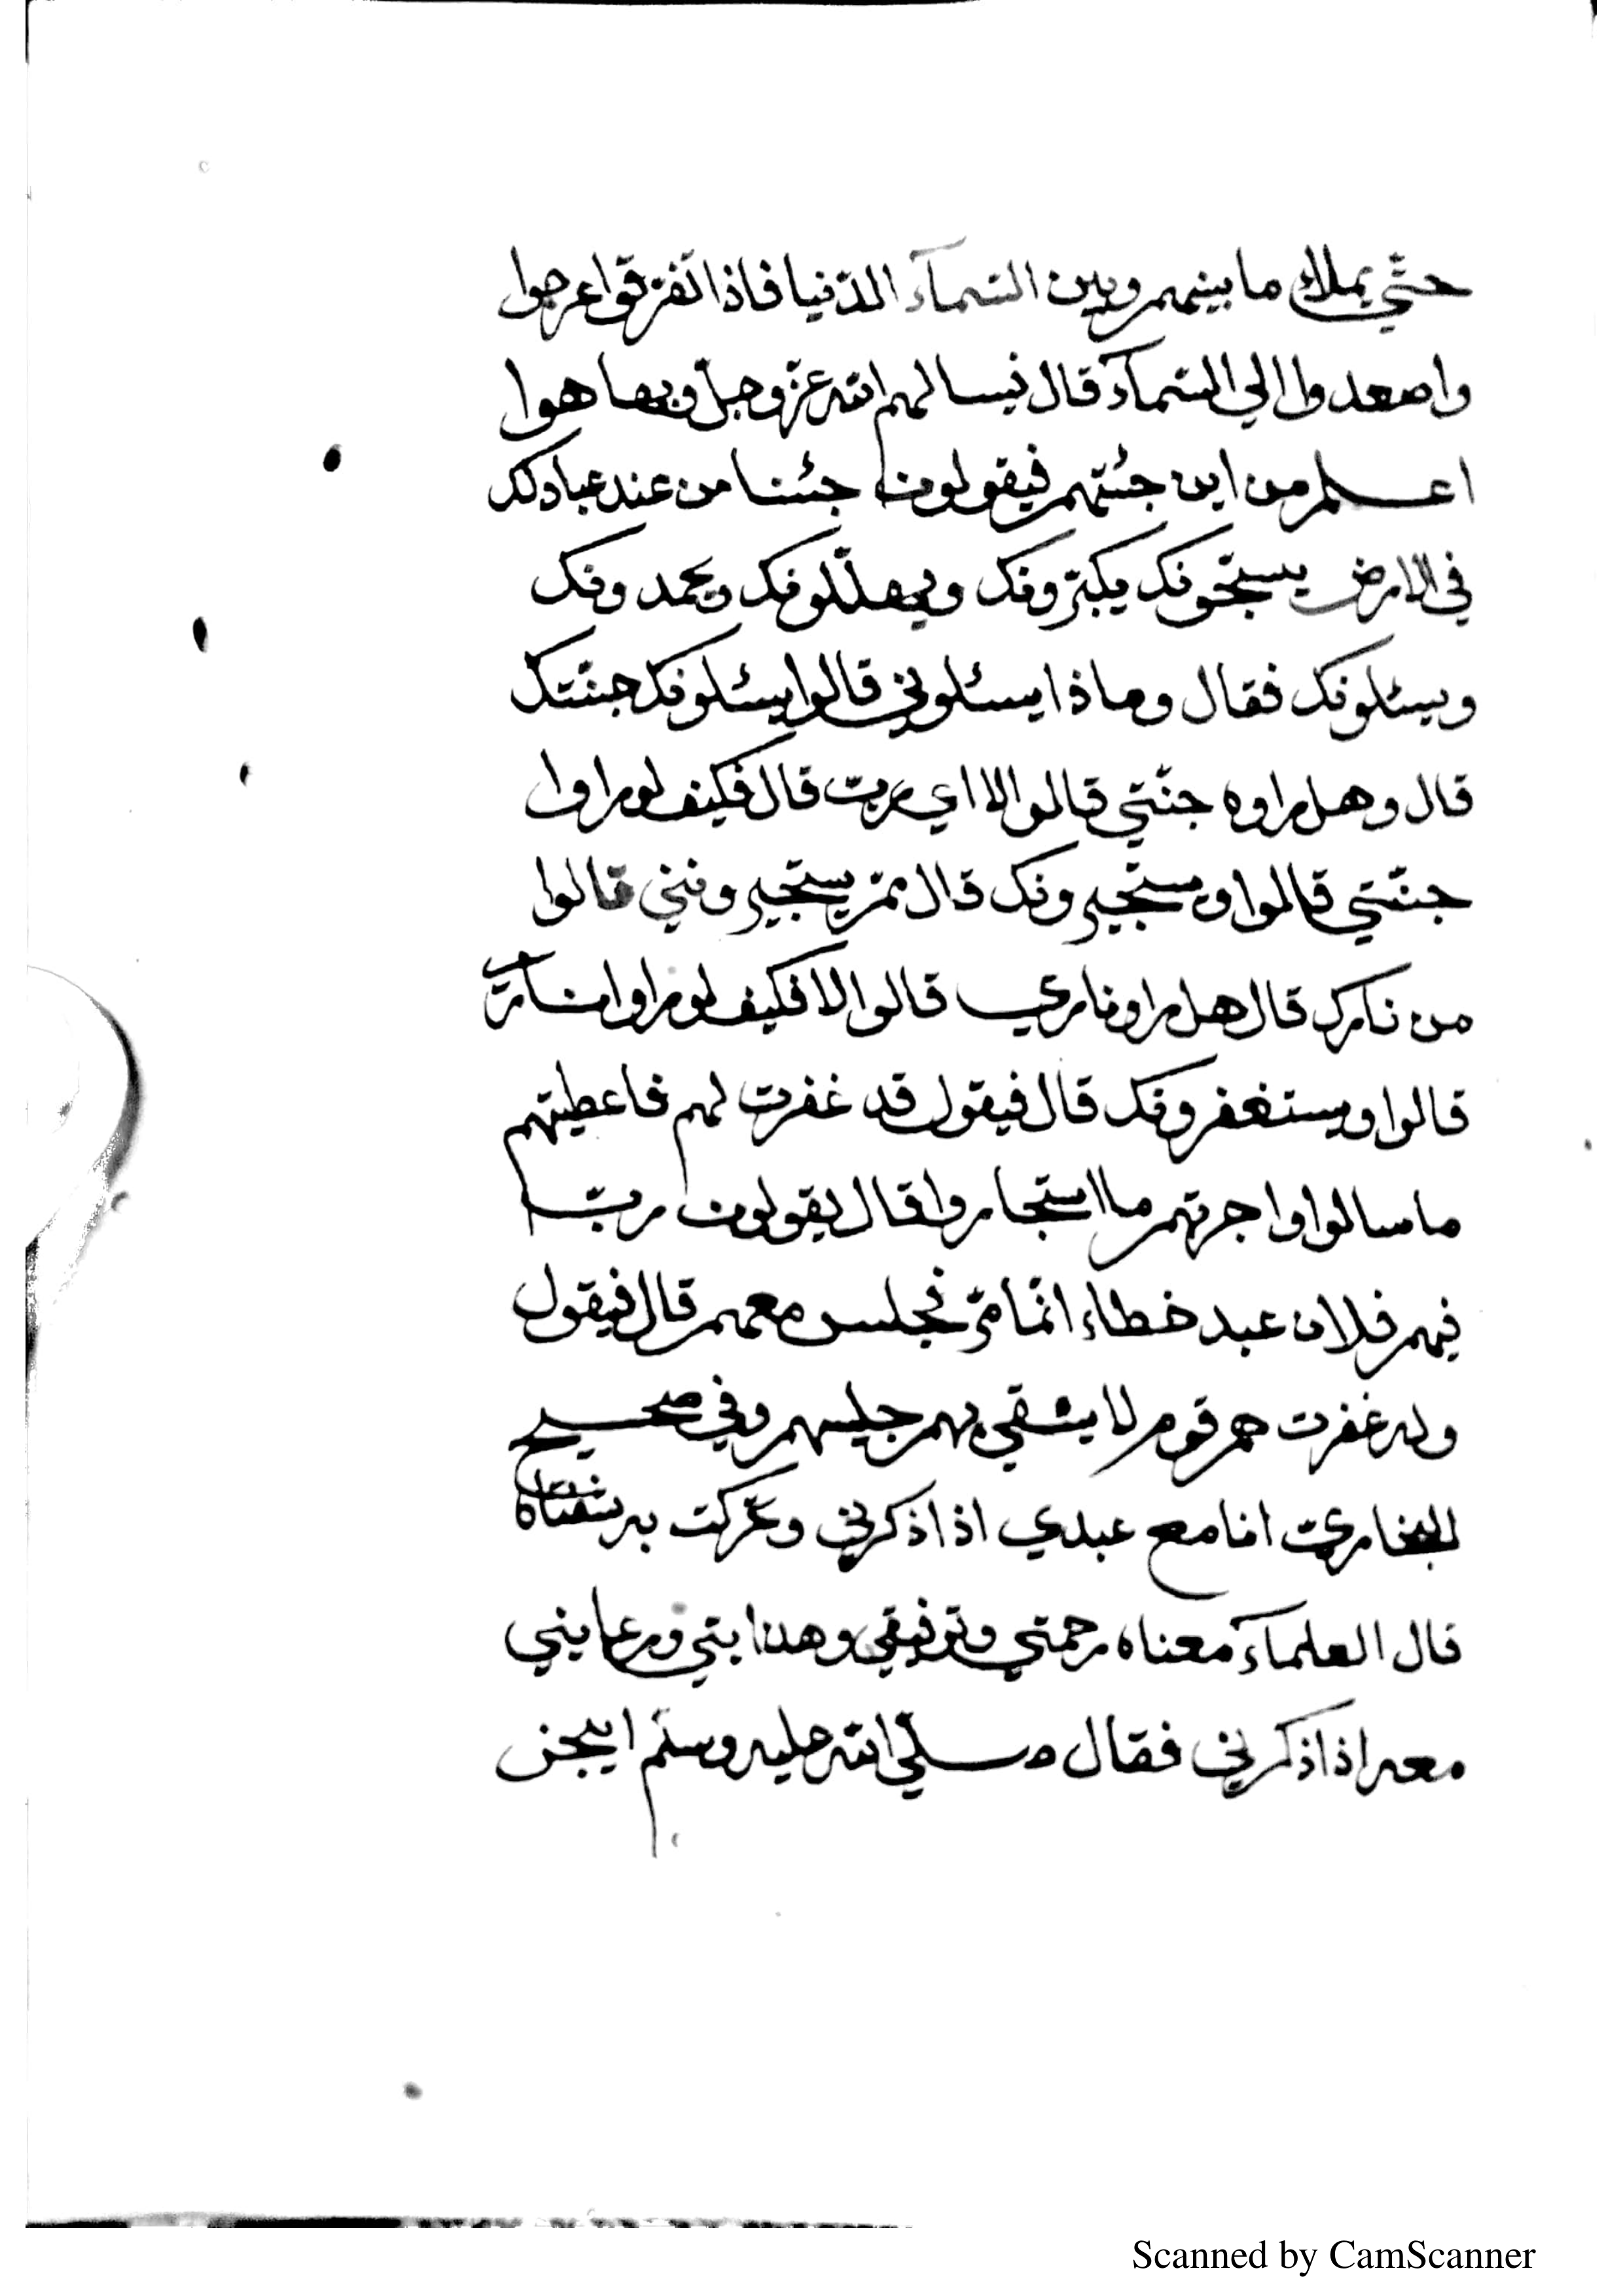 حتّي يملاؤ ما بينهم وبين السّمآء الدّنيا فاذا تفرّقوا عرجوا
واصعدوا الي السّمآء قال فيسالهم الله عزّ وجلّ وبها هوا
اعلم من اين جئتهم فيقولون جئنا من عند عبادك
في الارض يسبّحونك يكبّرونك ويهلّلونك ويحمدونك
ويسئلونك فقال وماذا يسئلوني قالوا يسئلونك جنّتك
قال وهل راوه جنّتي قالوا لا اي ربّ قال فكيف لو راوا
جنّتي قالوا ويستجيرونك قال ممّ يستجيرونني قالوا
من نارك قال هل راو ناري قالوا لا فكيف لو راوا
قالوا ويستغفرونك قال فيقول قد غفرت لهم فاعطيتهم
ما سالوا واجرتهم ما استجاروا قال يقولون ربّ
فيهم فلان عبد خطاء انّما مرّ فجلس معهم قال فيقول
وله غفرت هم قوم لا يشقي بهم جليسهم وفي صحيح
البخاريّ انا مع عبدي اذا ذكرني وتحرّكت به شفتاه
قال العلمآء معناه رحمتي وتوفيقي وهدايتي ورعايتي
معه اذا ذكرني فقال صلّي الله عليه وسلّم ايعجز
Scanned by CamScanner